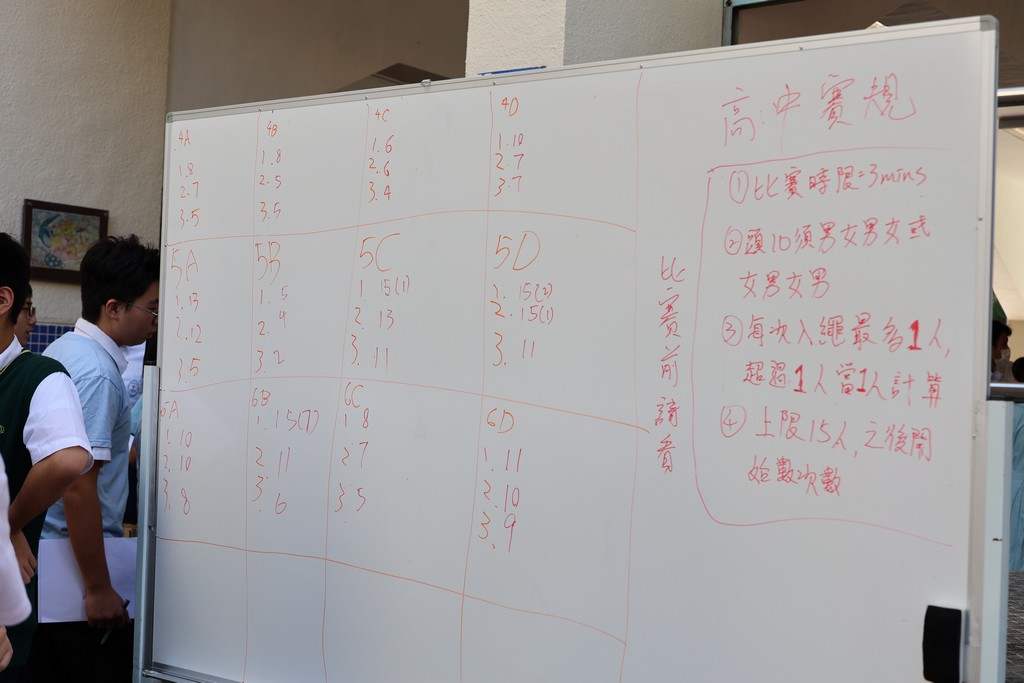 4A
1.8
2.7
3.5
4B
1.8
2.5
3.5
4C
1.6
2.6
3.4
4D
1.10
2.7
3.7
5A
1.13
2.12
3.5
5B
1. 5
2. 4
3. 2
5C
1. 15(1)
2. 13
3. 11
5D
1. 15(2)
2. 15(1)
3. 11
6A
1.10
2.10
3. 8
6B
1. 15(7)
2. 11
3. 6
6C
1 8
2 7
3. 5
6D
1. 11
2. 10
3. 9
比賽前請看
高中賽規
①比賽時限=3mins
②頭10須男女男女或
女男女男
③每次入繩最多1人,
超過1人當1人計算
④上限15人,之後開
始數次數